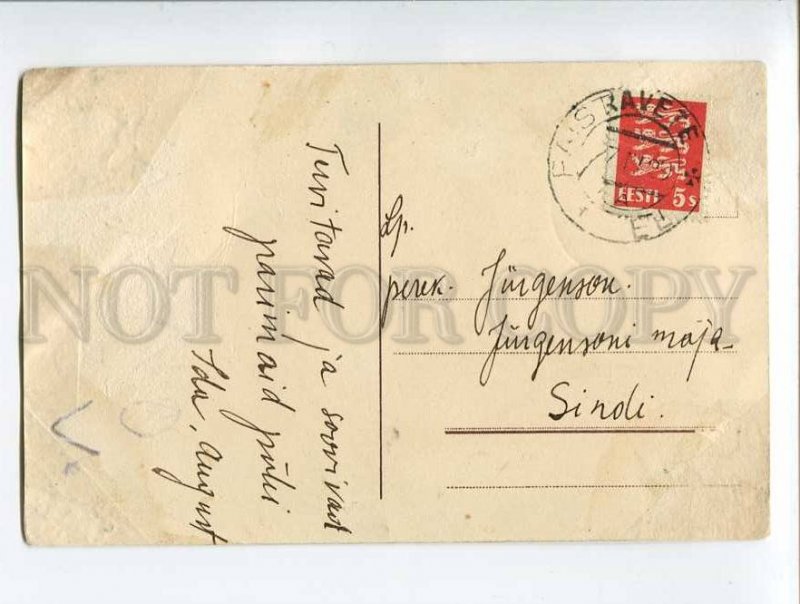 Tervitavad ja soovivad
parimaid pühi
Ida, August
Lp.
perek. Jürgenson.
Jürgensoni maja
Sindi.
RAVETE
EESTI 5 s
NOT FOR COPY